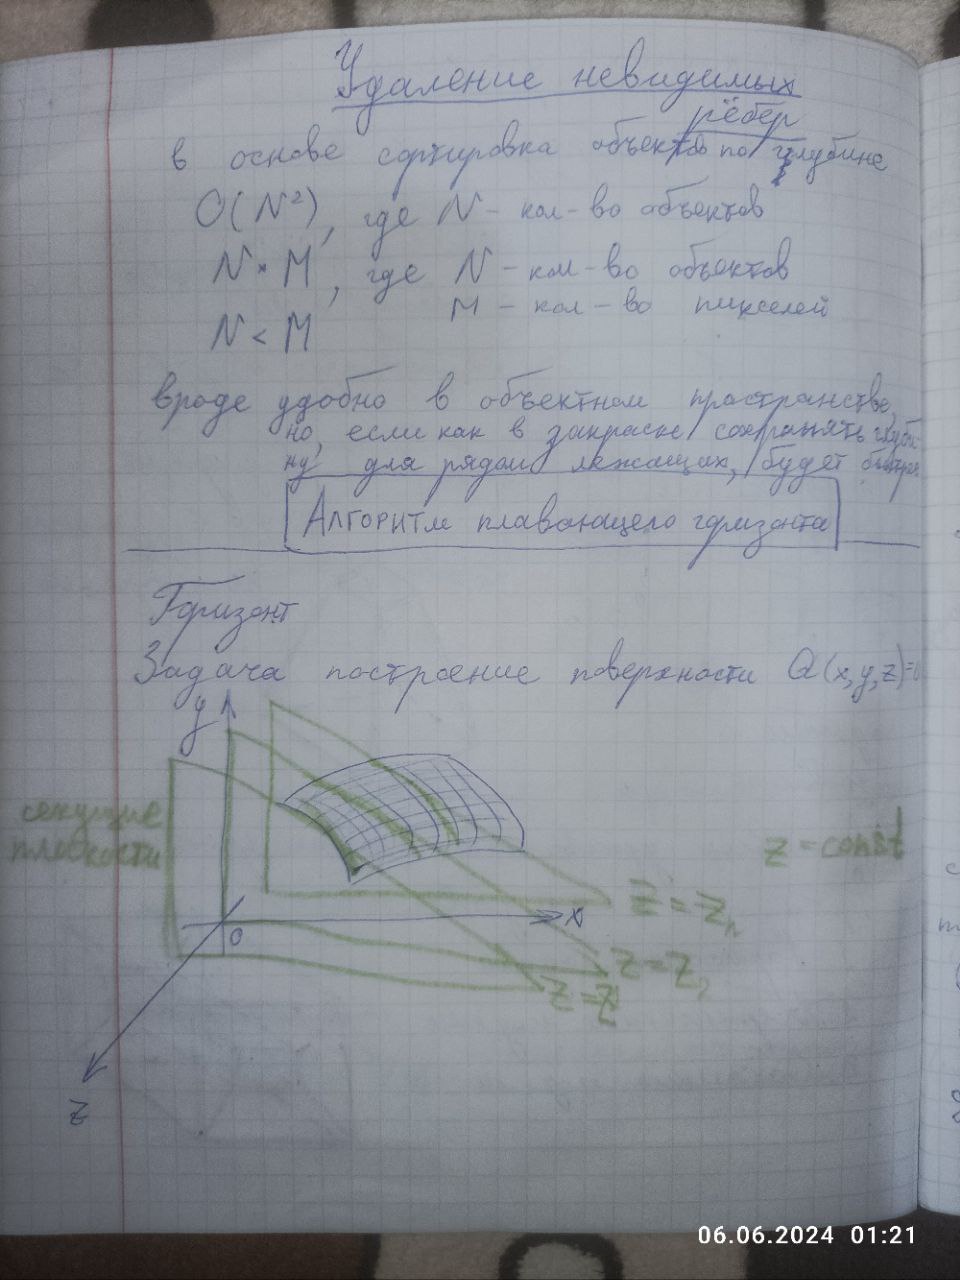 Удаление невидимых
рёбер
в основе сортировка объектов по глубине
O(N²), где N - кол-во объектов
N × M, где N - кол-во объектов
M - кол-во пикселей
N < M
вроде удобно в объектном пространстве,
но, если как в закраске сохранять глуби
ну для рядом лежащих, будет быстрее
Алгоритм плавающего горизонта
Горизонт
Задача построение поверхности Q(x,y,z)=0
y
секущие
плоскости
z = const
z = zn
x
0
z = z2
z = z1
z
06.06.2024 01:21